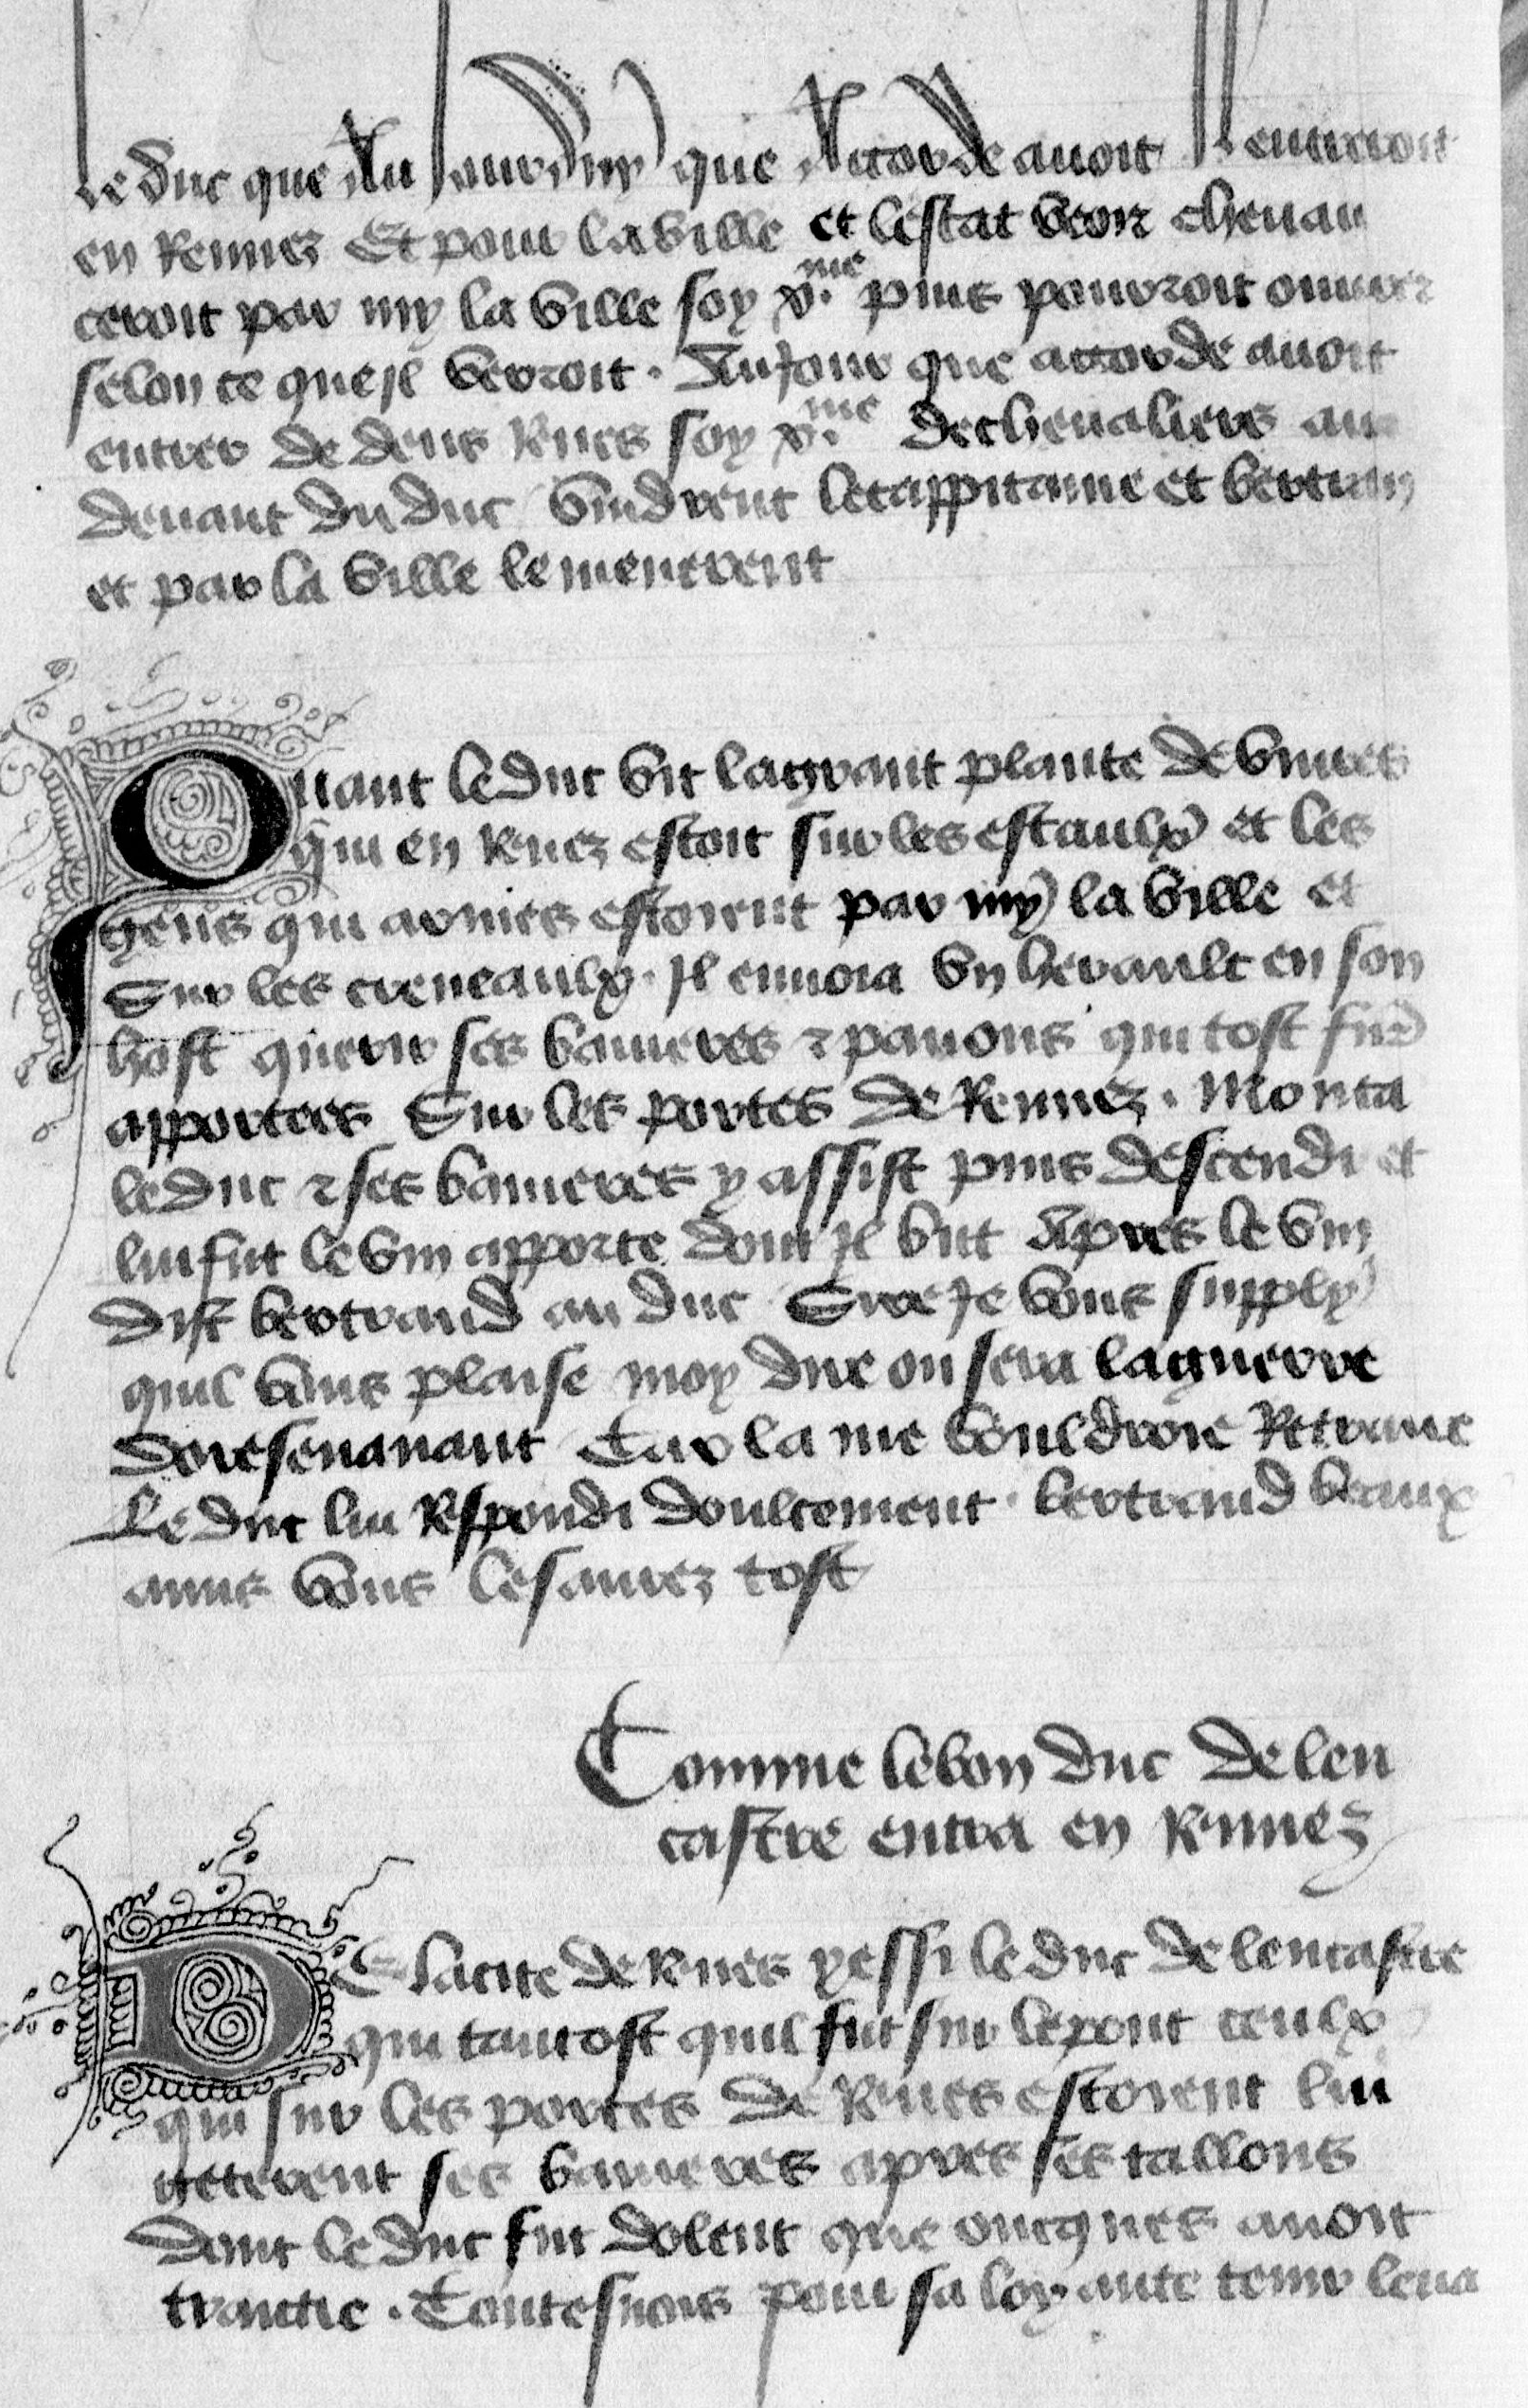 le duc que Au jour duy que Acorde avoit Il entreroit
en Rennez Et pour la ville et lestat veoir chevau
ceroit par my la ville soy x.me puis pouvroit ouvrer
selon ce que jl verroit. Au jour que accorde avoit
entrer de dens Rnes soy x.me de chevaliers au
devant du duc vindrent le cappitaine et bertran
et par la ville le menerent
Quant le duc vit la grant plante de vivres
qui en Rnez estoit sur les estaulx et les
gens qui armes estoient par my la ville et
Sur les creneaulx. Il envoia vn herault en son
host querir ses banieres & panons qui tost fur
apportees Sur les portes de Rennez. Monta
le duc & ses banieres y assist puis descendi et
lui fut le vin apporte dont jl but Apres le vin
dist bertrand au duc Sire Je vous supply
quil vous plaise moy dire ou sera la guerre
doresenavant Car la me vouldroie Retraire
Le duc lui Respondi doulcement. bertrand beaux
amis vous le saurez tost
Comme le bon duc de len
castre entra en Rnnez
DE la cite de Rnes yessi le duc de lencastre
qui tantost quil fut sur le pont ceulx
qui sur les portes de Rnes estoient lui
geterent ses banieres apres ses tallons
dont le duc fut dolent que oncques avoit
traictie. Toutesvois pour sa loyaute tenir leva